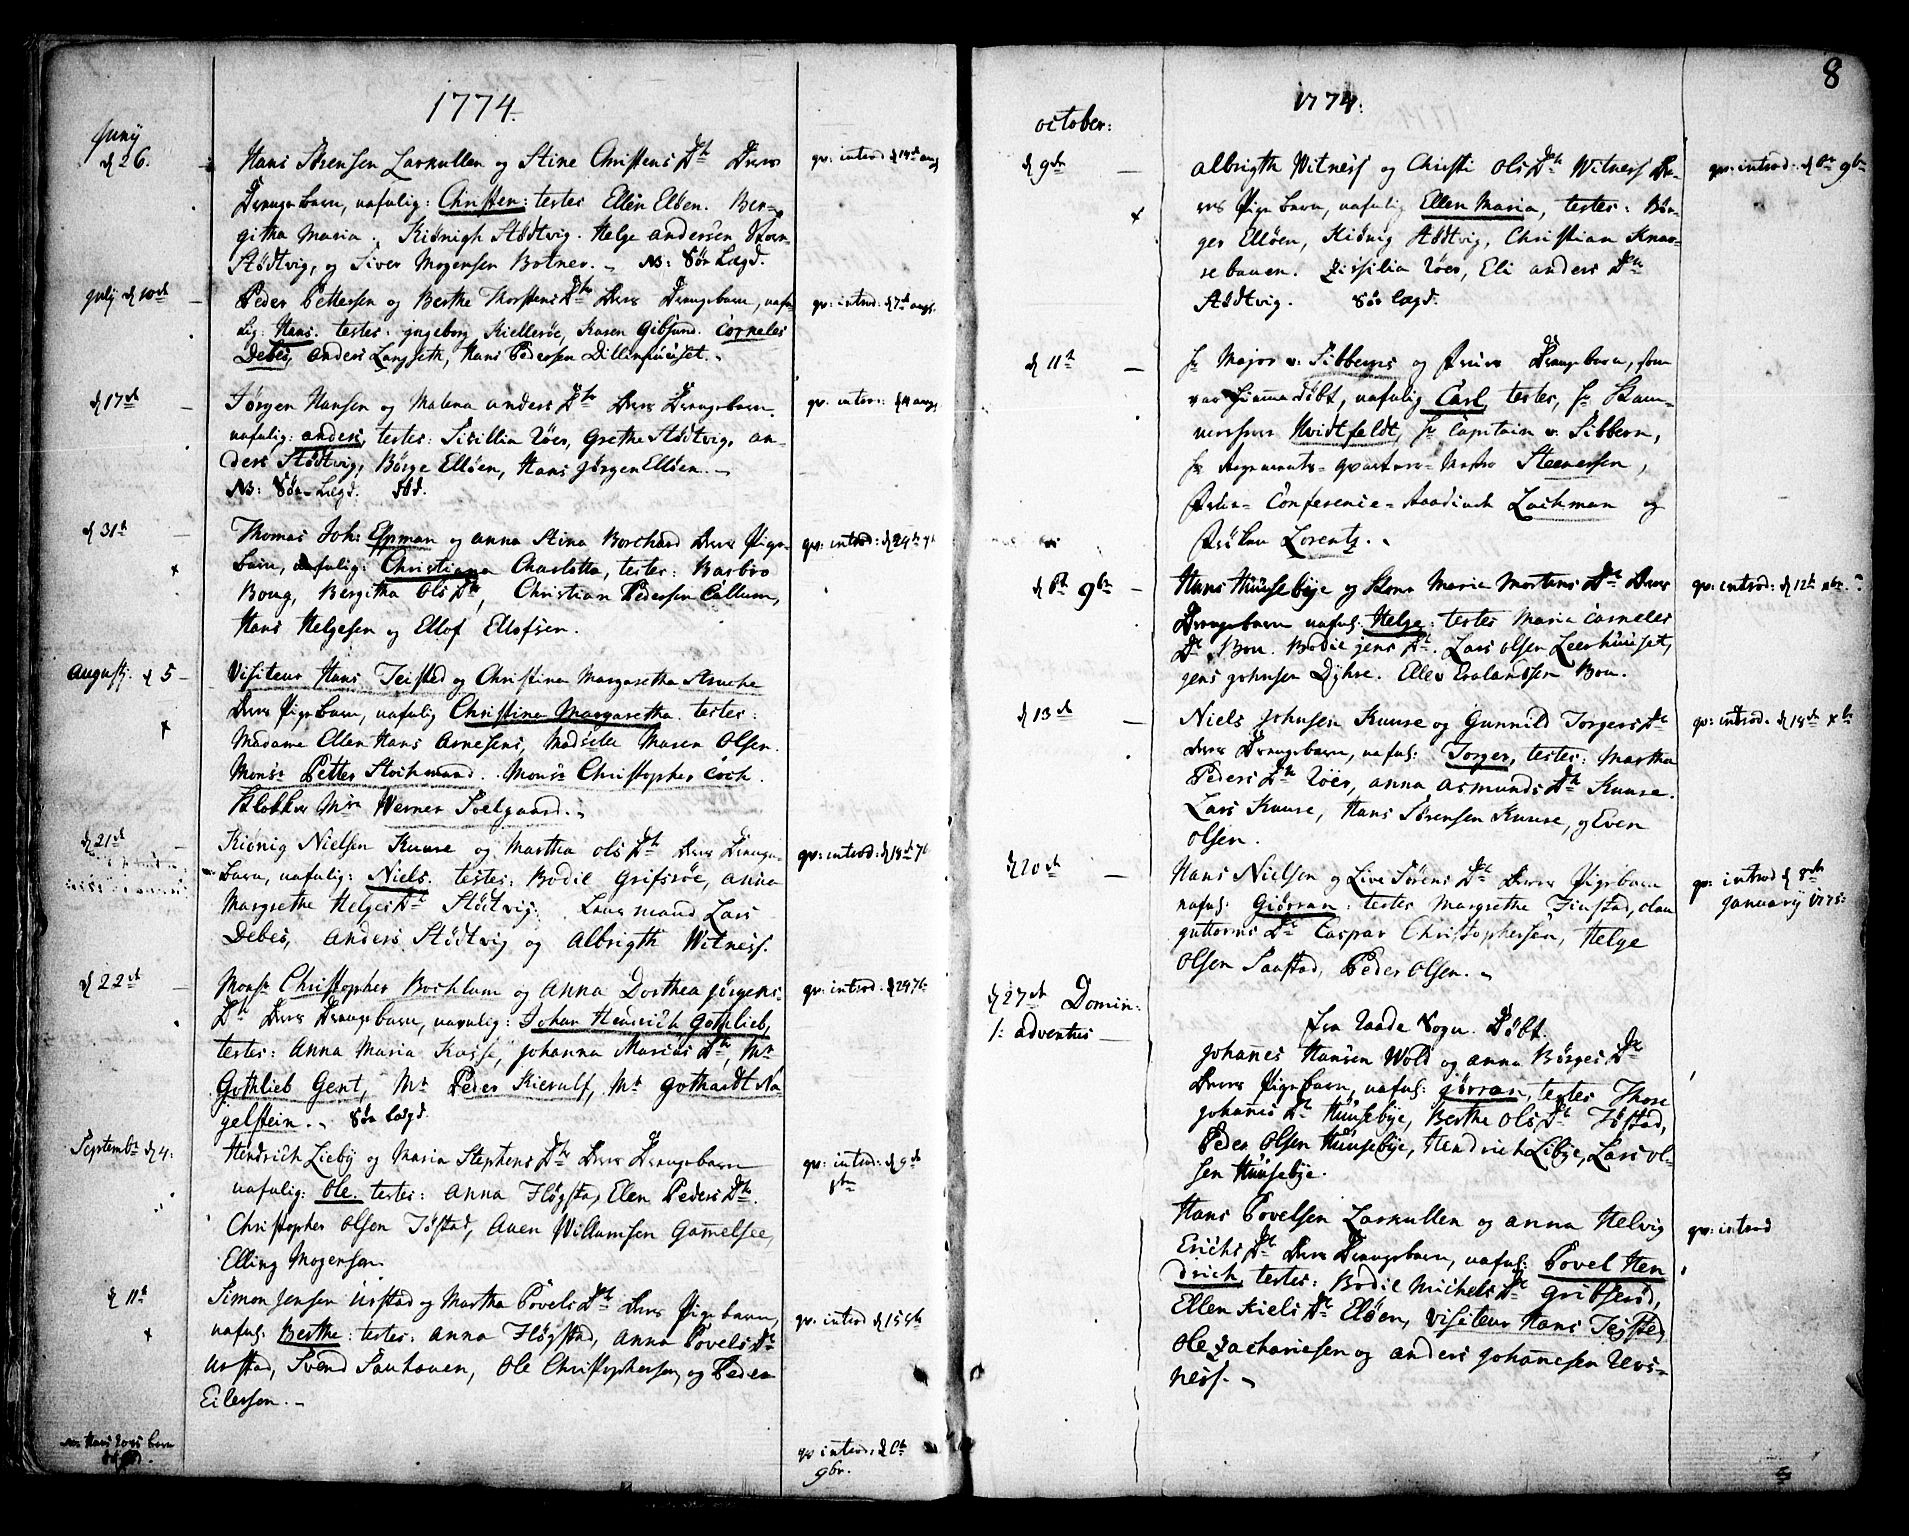 1774.
Junij
d 26.
Hans Sørensen Larkullen og Stine Christens Dtr Deres
Drænge Barn, nafnlig: Christen: testes Ellen Eløen. Ber-
githa Maria. Kiønigh Stødtvig. Helge Andersen
Stødtvig, og Siver Mogensen Botner. NB: Sør Lægd.
qv: introd d 14de aug
Julij d 10de
Peder Pettersen og Berthe Thorstens Dtr Deres Drængebarn, nafn-
lig: Hans. testes. Jngeborg Kiellerøe, Karen Gibsund. Corneles
Debes, Anders Langseth, Hans Pedersen Dillinghuuset.
qv: introd: d 7de augs.
d 17de
Jørgen Hansen og Malena Anders Dtr Deres Drængebarn.
nafnlig: Anders, testes: Sicillia Røer, Grethe Stødtvig, An-
ders Stødtvig, Børge Elløen, Hans Jørgen Elløen.
NB: Sør-Lægd. død.
qv: intro: d augs
d 31te
Thomas Joh: Espman og Anna Stina Borchard Deres Pige-
barn, nafnlig: Christiana Charlotta, testes: Barbro
Boug, Bergitha Ols Dtr, Christian Pedersen Cullum,
Hans Helgesen og Ellof Ellofsen.
qv: introd: d 24de 7b
Augustj. d 5
Visiteur Hans Teisted og Christina Margaretha
Deres Pige Barn, nafnlig Christina Margaretha. testes:
Madame Ellen Hans Arnesens, Madselle Maren Olsen.
Monsr Petter Stochmand. Monsr Christopher Coch.
Klokker Mr Werner Soelgaard.
d 21de
Kiønig Nielsen Kuure og Martha Ols Dtr Deres Drænge-
Barn, nafnlig: Niels. testes: Bodil Grifsrøe, Anna
Margrethe Helges Dtr Stødtvig. Lars
Debes, Anders Stødtvig og Albrigth Witness.
qv: introd: d 18de 7b
d 22de
Monsr Christopher Bochlum og Anna Dorthea Jørgens-
Dtr Deres Drængebarn, nafnlig: Johan Hendrich Gottlieb,
testes: Anna Maria Kasse, Johanna Marias Dtr, Mr
Gottlieb Gent, Mr Peder Kierulf, Mr Gothardt Na-
gelstein. Sør Lægd.
qv: introd: d 24 7b
Septembr d 4:
Hendrich Lieby og Maria Stephens Dtr Deres Drængebarn
nafnlig: Ole. testes: Anna Høgsta, Elen Peders Dtr.
Christopher Olsen Jøstad, Auen Willumsen Gamelsee,
Elling Mogensen.
qv: introd: d 9de
8br
d 11te
Simon Jensen Urstad og Martha Povels Dtr Deres Pigebarn,
nafnl: Berthe: testes: Anna Høgstad, Anna Povels Dtr
Urstad, Svend Sauhauen, Ole Christophersen, og Peder
Eilersen.
qv: introd d 15 8b
NB: Hans barn
qv introd: d 6te
9br.
8
1774.
October:
d 9de
Albrigth Witness og Christi Ols Dtr Witness De-
res Pige barn, nafnlig Ellen Maria, testes: Bør-
ger Elløen, Kiønig Stødtvig, Christian Knar-
rebauen. Zissilia Røer, Eli Anders Dtr
Stødtvig. Sør Lægd.
qv: introd: d 6te 9br
d 11te
Hr Major v: Sibberns og Frues Drængebarn, som
var hiemmedøbt, nafnlig Carl, testes, Hr Kam-
merherr Hvidtfeldt, Hr Capitain v. Sibbern,
Hr Regiments-Qvarteer-Mester Steenersen,
Frue Conference-Raadinde Lachman og
Frøken Lorentz.
d 6te 9br
Hans Huusebye og Marie Mortens Dtr Deres
Drængebarn nafnl. Helge: testes Maria Corneles
Dtr Bou. Bodil Jens Dtr. Lars Olsen Leerhuuset,
Jens Johnsen Dyhre. Elles Eralandssen Bou.
qv: introd: d 12te xbr.
d 13de
Niels Johnsen Kuure og Gunnild Torgers Dtr
deres Drængebarn, nafnl: Torger, testes: Martha
Peders Dtr Røer, Anna Asmunds Dtr Kuure.
Lars Kuure, Hans Sørensen Kuure, og Even
Olsen.
qv: introd. d 18de xb
d 20de
Hans Nielsen og Live Sørens Dtr Deres Pigebarn
nafnl: Giørran: testes Margrethe Finstad, Olau
guttorms Dtr Caspar Christophersen, Helge
Olsen Saustad, Peder Olsen.
qv: introd d 8de
January 1775:
d 27de Domin:
1: adventus
fra Raade Sogn. Døbt:
Johanes Hansen Wold og Anna Børges Dtr
Deres Pigebarn, nafnl: Jørran, testes Thore
Johanis Dtr Huusebye, Berthe Ols Dtr Jøstad,
Peder Olsen Huusebye, Hendrich Libye, Lars Ol-
sen Huusebye.
Hans Povelsen Larkullen og Anna Helvig
Erichs Dtr Deres Drængebarn, nafnl: Povel Hen
drich, testes: Bodil Michels Dtr Gribsrød,
Ellen Kiels Dtr Eløen, Visiteur Hans Teisted,
Ole Zachariesen og Anders Johannesen Wes-
ness.
qv: introd